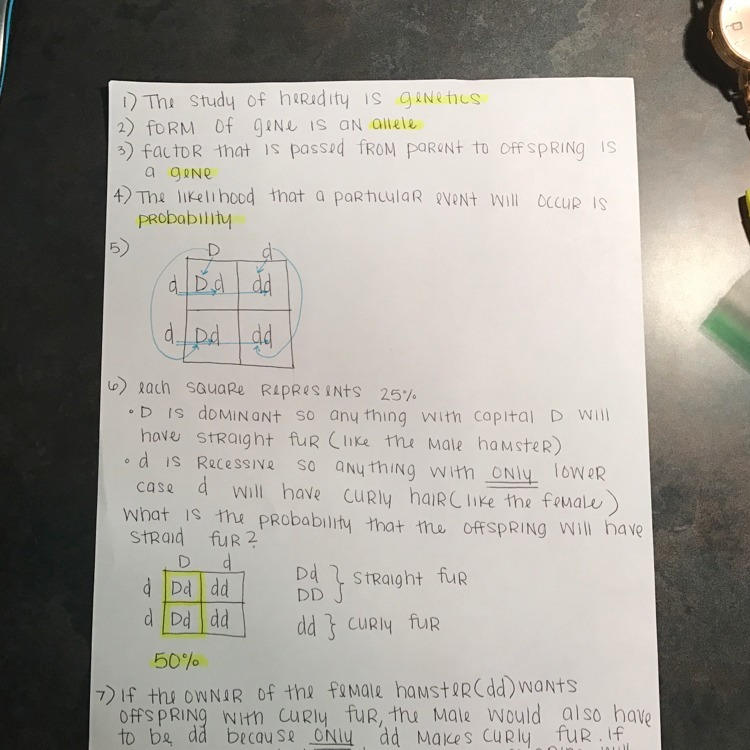 1) The study of heredity is genetics
2) form of gene is an allele
3) factor that is passed from parent to offspring is
a gene
4) The likelihood that a particular event will occur is
probability
5)
D d
d Dd dd
d Dd dd
6) each square represents 25%
• D is dominant so anything with capital D will
have straight fur (like the male hamster)
• d is recessive so anything with ONLY lower
case d will have curly hair (like the female)
What is the probability that the offspring will have
straid fur?
D d
d Dd dd
d Dd dd
Dd } straight fur
DD
dd } curly fur
50%
7) If the owner of the female hamster (dd) wants
offspring with curly fur, the male would also have
to be dd because ONLY dd makes curly fur. If